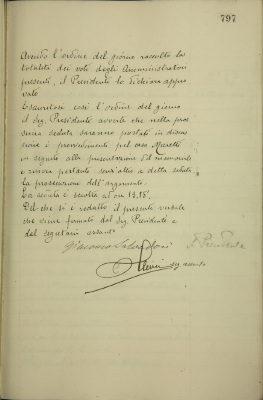 797
Avendo l'ordine del giorno raccolto la
totalità dei voti degli Amministratori
presenti, il Presidente lo dichiara appro
vato.
Esauritosi così l'ordine del giorno
il Sig. Presidente avverte che nella pros
sima seduta saranno portati in discus
sione i provvedimenti pel caso Moretti
in seguito alla presentazione del memoriale
e rinvia pertanto senz'altro a detta seduta
la prosecuzione dell'argomento.
La seduta è sciolta ad ore
Del che si è redatto il presente verbale
che viene firmato dal Sig. Presidente e
dal segretario
Giacomo
Il Presidente